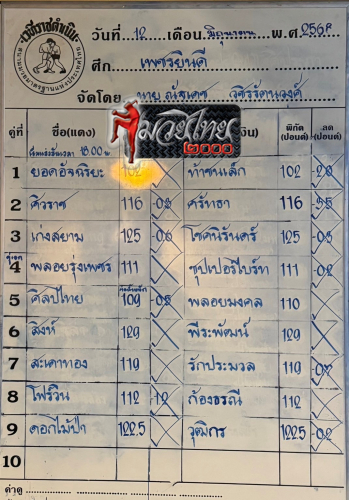 เวทีราชดำเนิน
วันที่ 12 เดือน มิถุนายน พ.ศ. 2568
ศึก เพชรยินดี
จัดโดย นาย ณัฐเดช วชิรรัตนวงศ์
มวยไทย
๒๐๐๐
คู่ที่ ชื่อ(แดง) พิกัด (ปอนด์) ลด (ปอนด์)
18.00 น.
1 ยอดอัจฉริยะ 102 ท้าชนเล็ก 102 -2.0
2 ศิวราช 116 -0.3 ศรัทธา 116
3 เก่งสยาม 125 -0.6 โชคนิรันดร์ 125 -0.3
คู่เอก
4 พลอยรุ่งเพชร 111 ซุปเปอร์ไบร์ท 111 -0.2
5 ศิลป์ไทย 109 -0.8 พลอยมงคล 110
6 สิงห์ 129 พีระพัฒน์ 129
7 สะเดาทอง 119 รักประมวล 119
8 โฟร์วิน 112 -1.2 ก้องธรณี 112
9 ดอกไม้ป่า 122.5 วุฒิกร 122.5 -0.2
10
ค่าดู